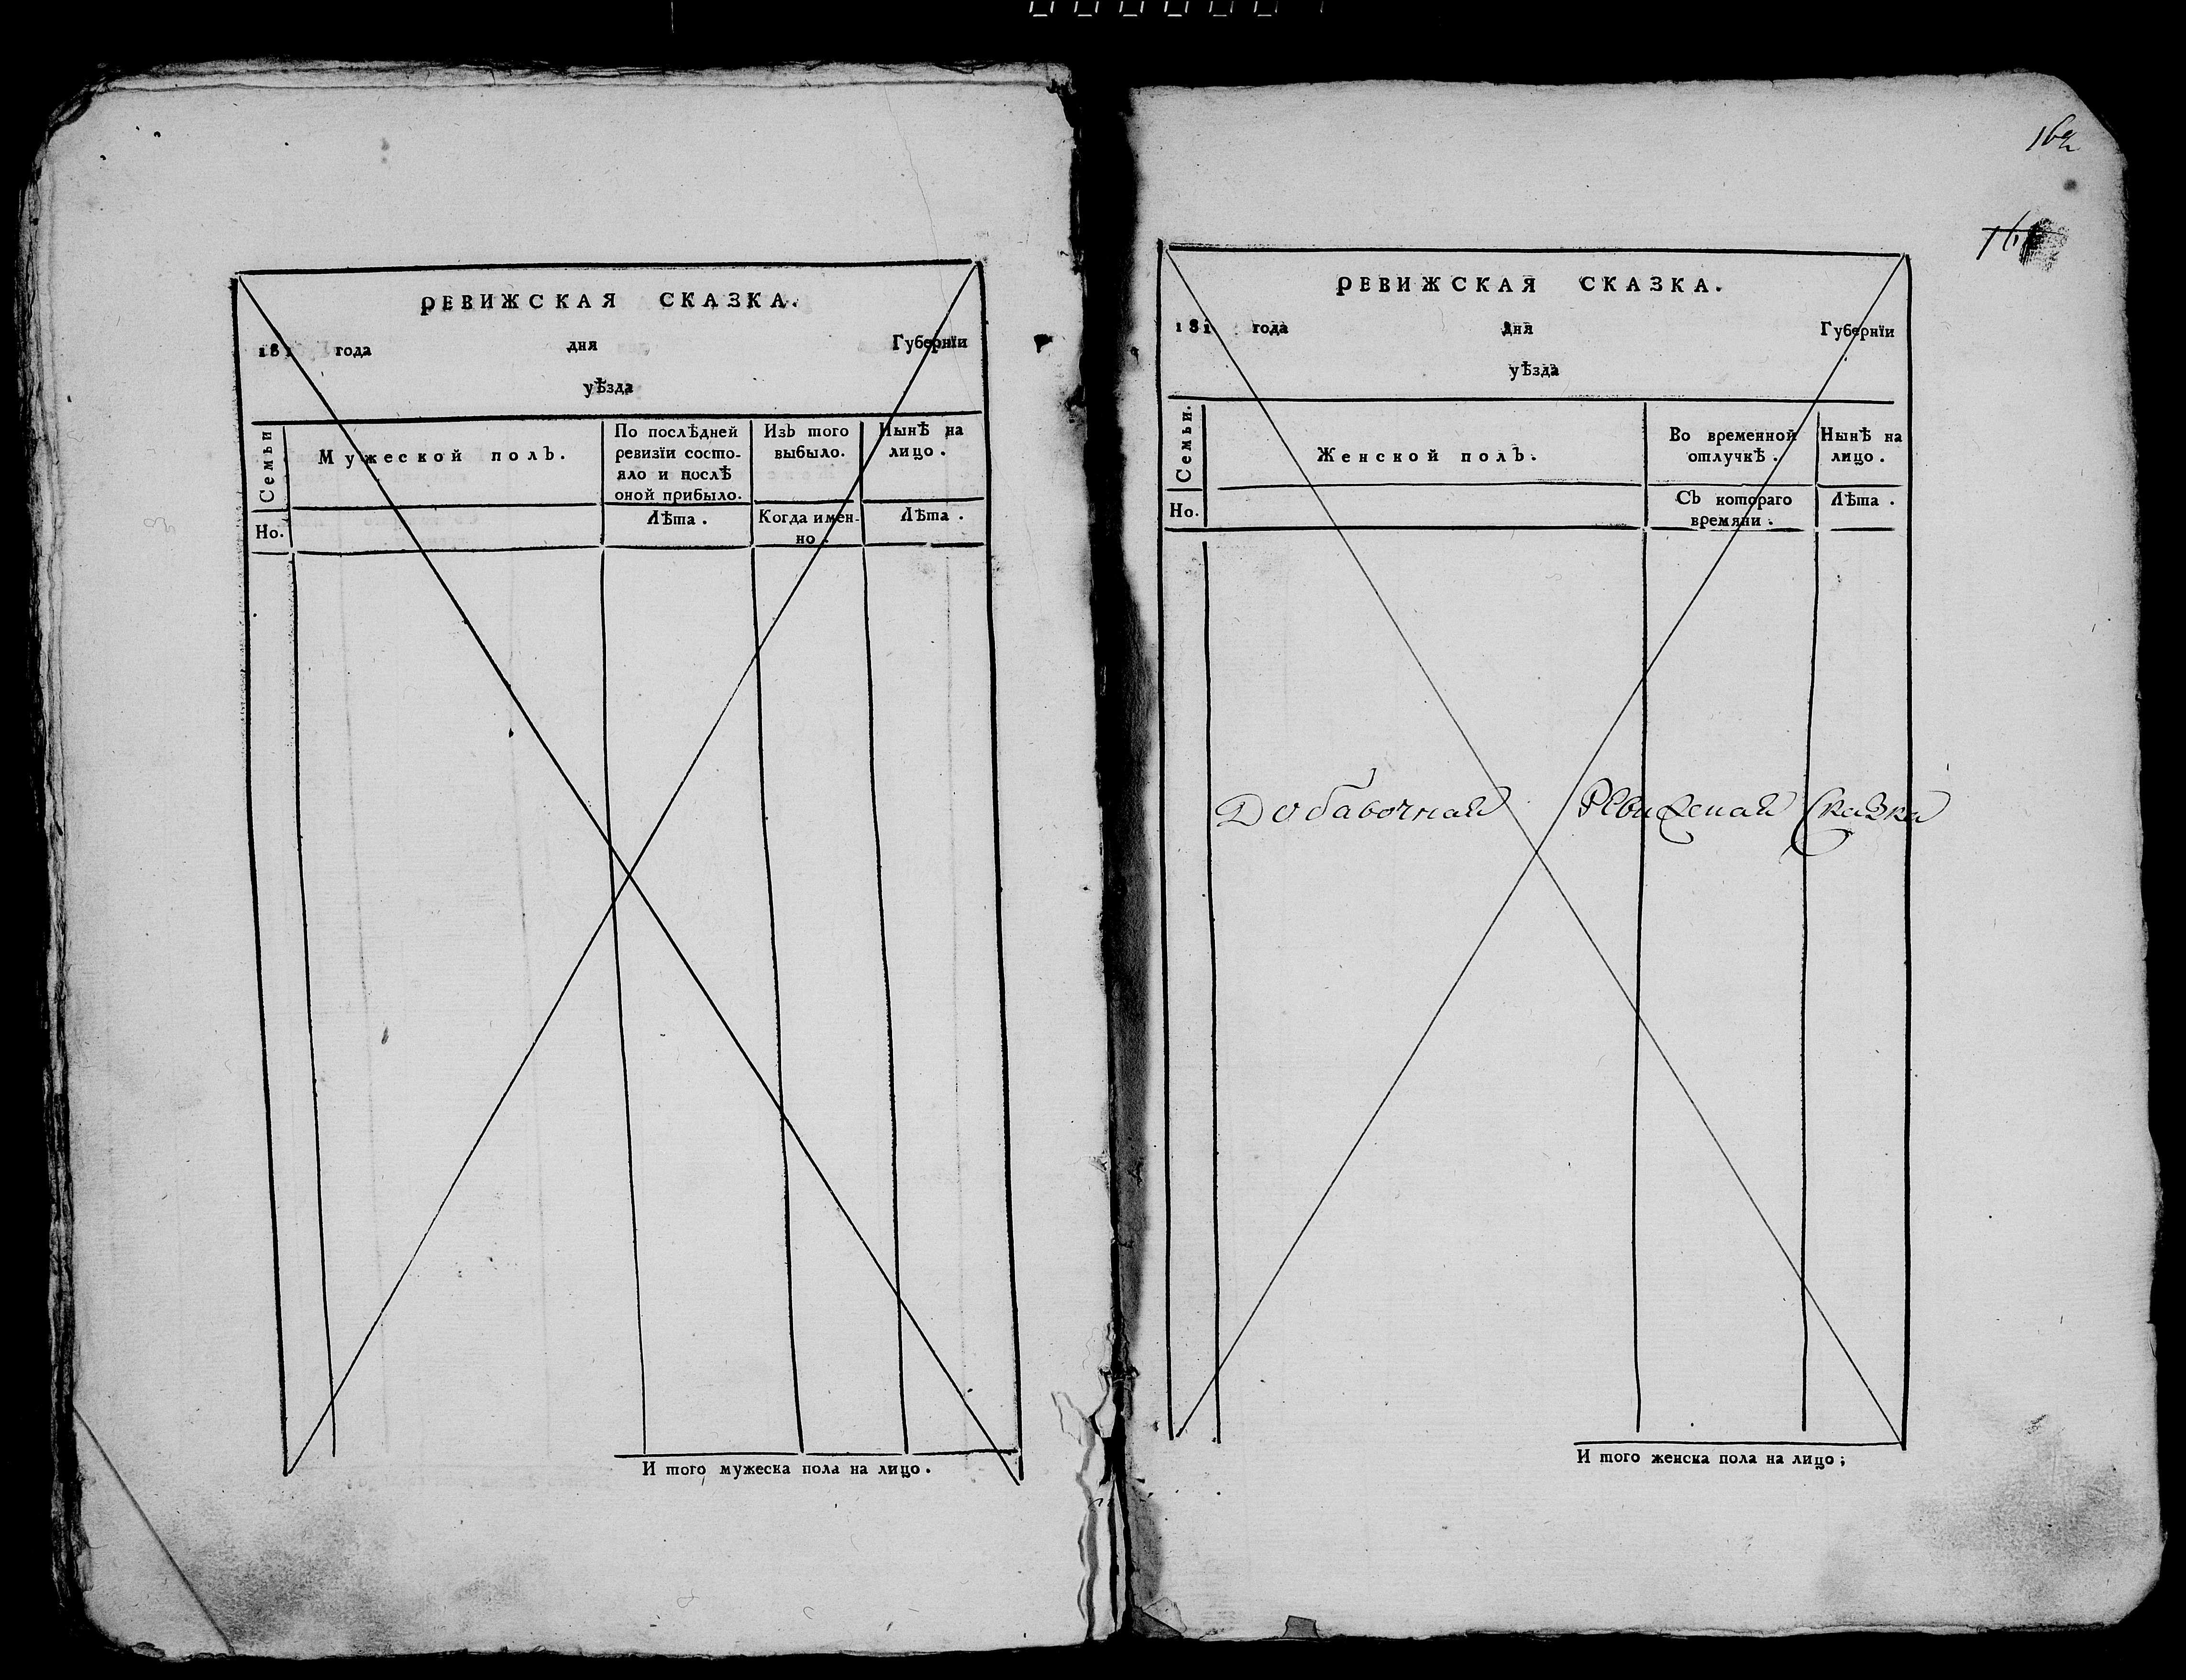 РЕВИЖСКАЯ СКАЗКА.
181 года дня Губернїи
уѣзда
Семьи
Мужеской полъ.
По послѣдней
ревизїи состо-
яло и послѣ
оной прибыло.
Изъ того
выбыло.
Нынѣ на
лицо.
Но.
Лѣта.
Когда имен-
но.
Лѣта.
И того мужеска пола на лицо.
162
РЕВИЖСКАЯ СКАЗКА.
181 года дня Губернїи
уѣзда
Семьи.
Женской полъ.
Во временной
отлучкѣ.
Нынѣ на
лицо.
Но.
Съ котораго
времяни.
Лѣта.
Добавочная Ревизская Сказка
И того женска пола на лицо;